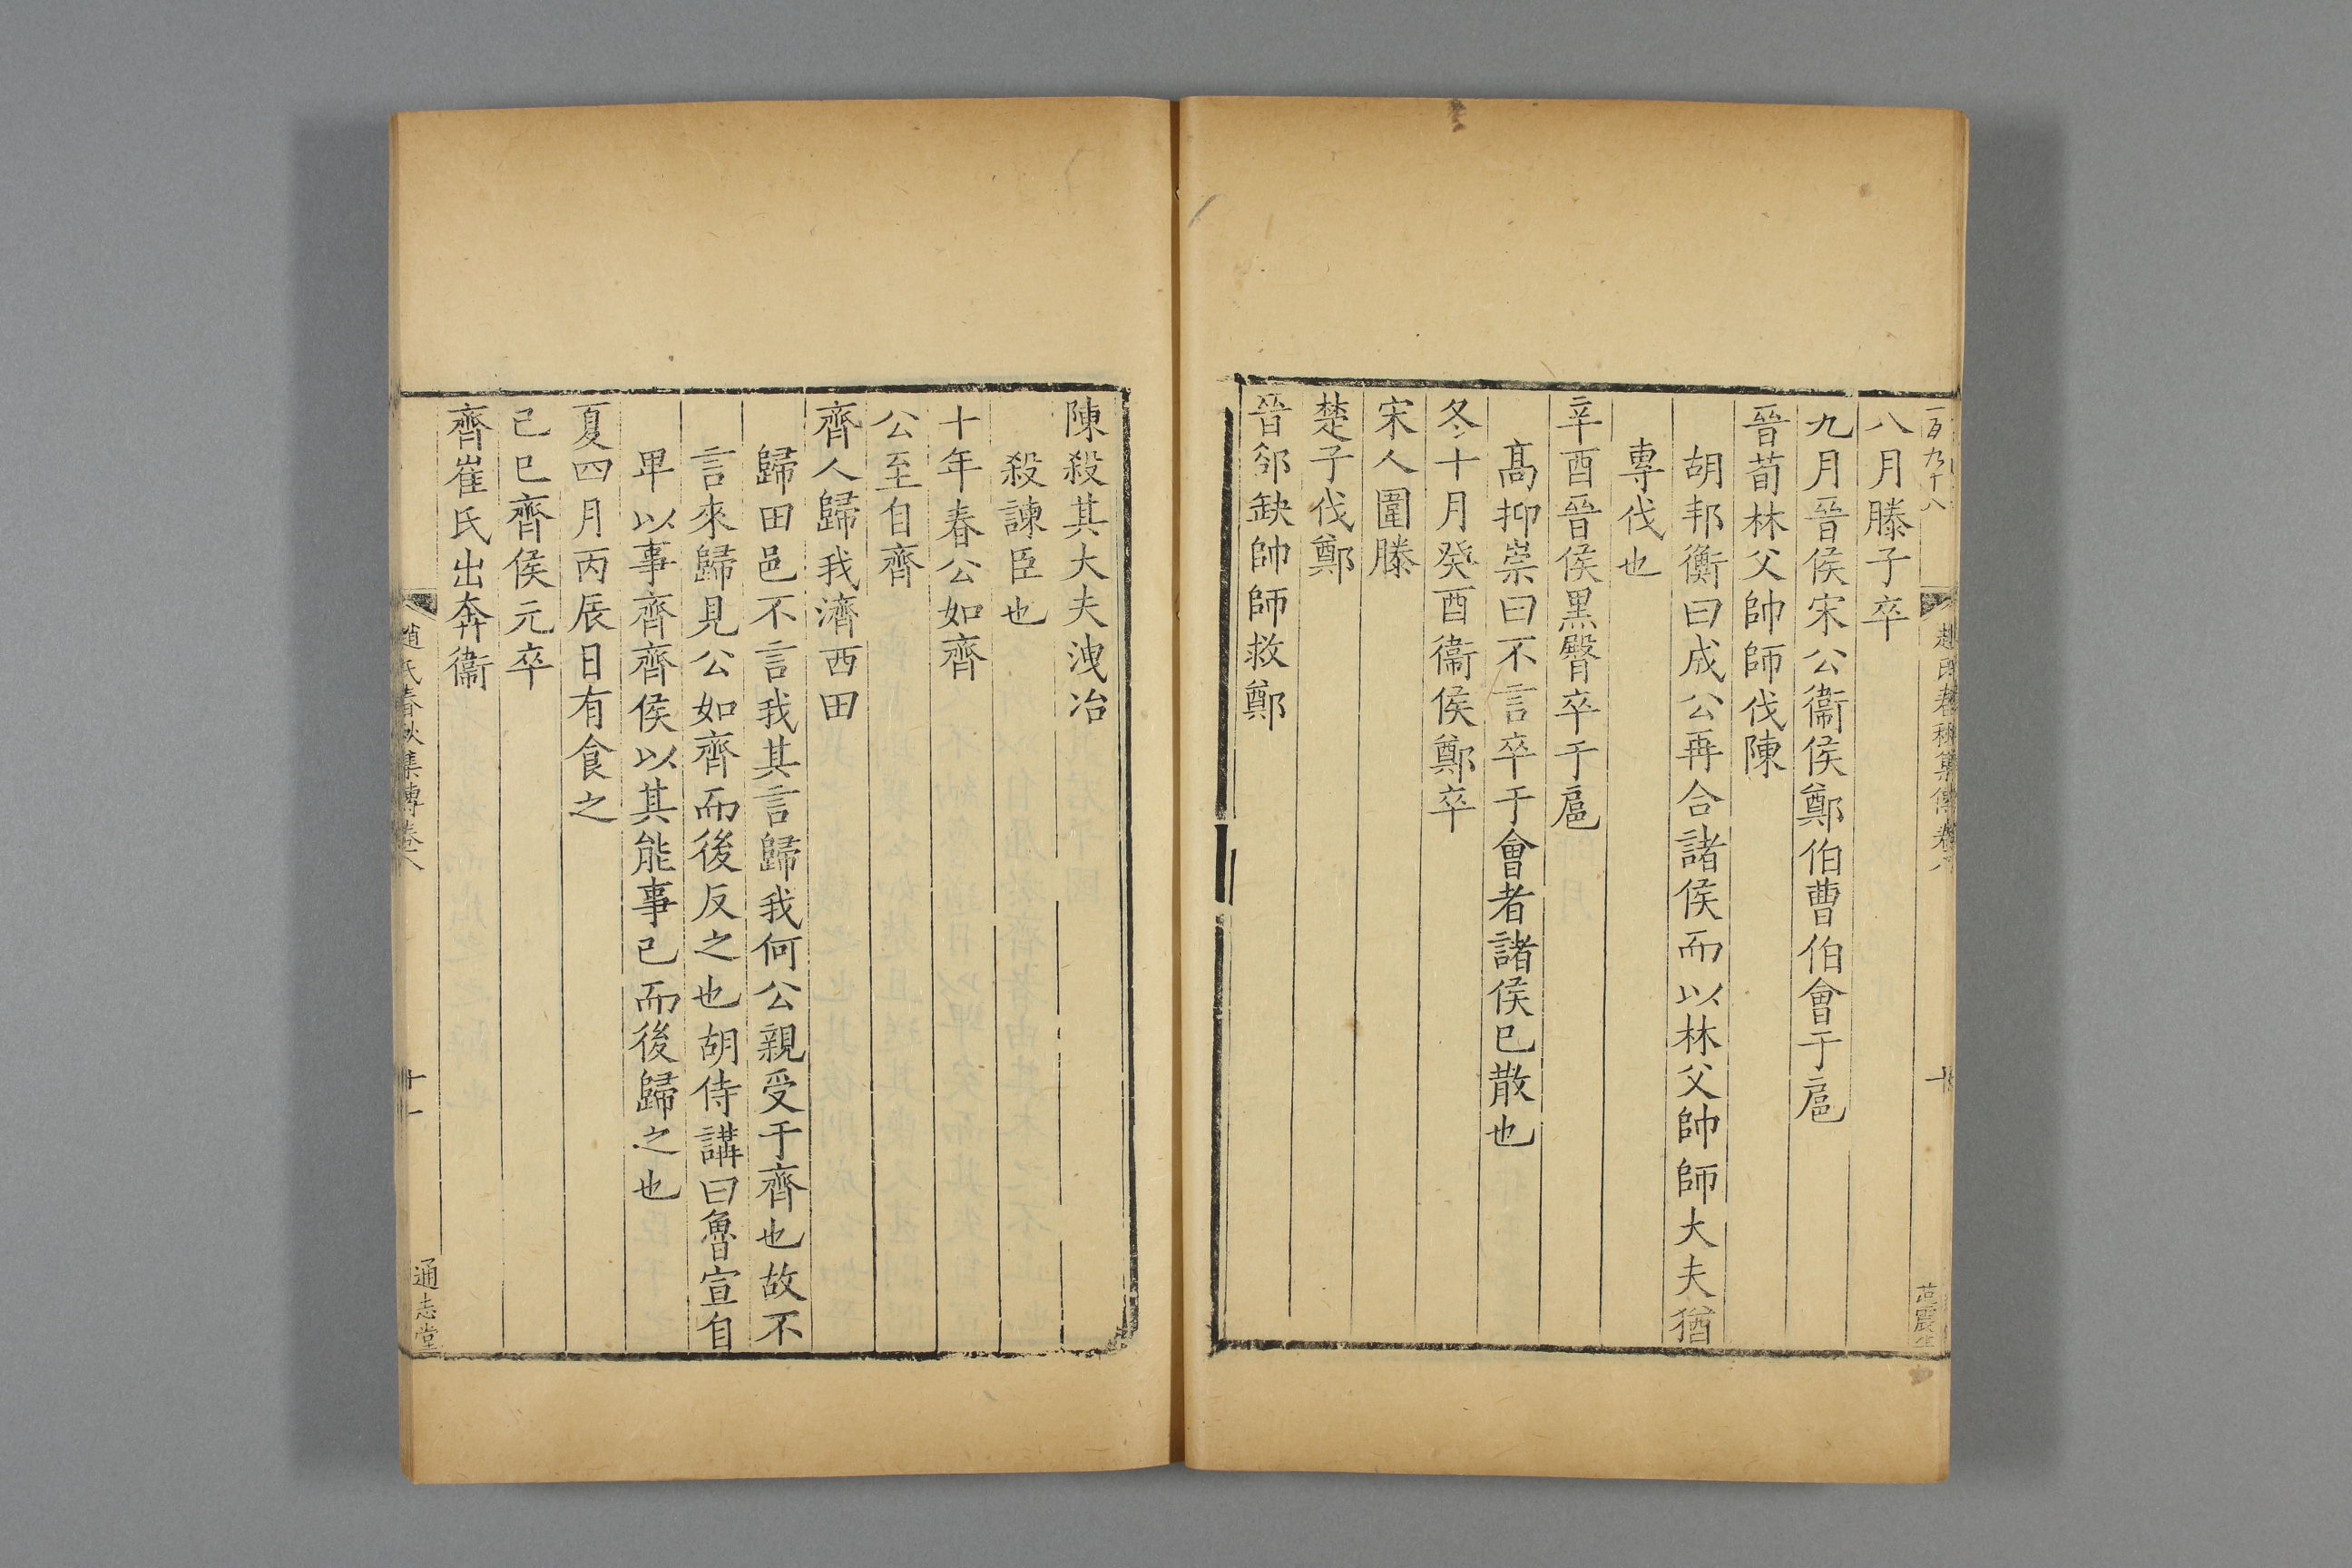 一百九十八
趙氏春秋集傳卷八
十
范震生
八月滕子卒
九月晉侯宋公衞侯鄭伯曹伯會于扈
晉荀林父帥師伐陳
胡邦衡曰成公再合諸侯而以林父帥師大夫猶
專伐也
辛酉晉侯黑臀卒于扈
髙抑崇曰不言卒于會者諸侯已散也
冬十月癸酉衞侯鄭卒
宋人圍滕
楚子伐鄭
晉郤缺帥師救鄭
陳殺其大夫洩冶
殺諫臣也
十年春公如齊
公至自齊
齊人歸我濟西田
歸田邑不言我其言歸我何公親受于齊也故不
言來歸見公如齊而後反之也胡侍講曰魯宣自
卑以事齊齊侯以其能事己而後歸之也
夏四月丙辰日有食之
己巳齊侯元卒
齊崔氏出奔衞
趙氏春秋集傳卷八
十一
通志堂